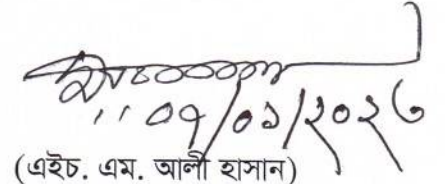 ০৭/০১/২০২৬
(এইচ. এম. আলী হাসান)